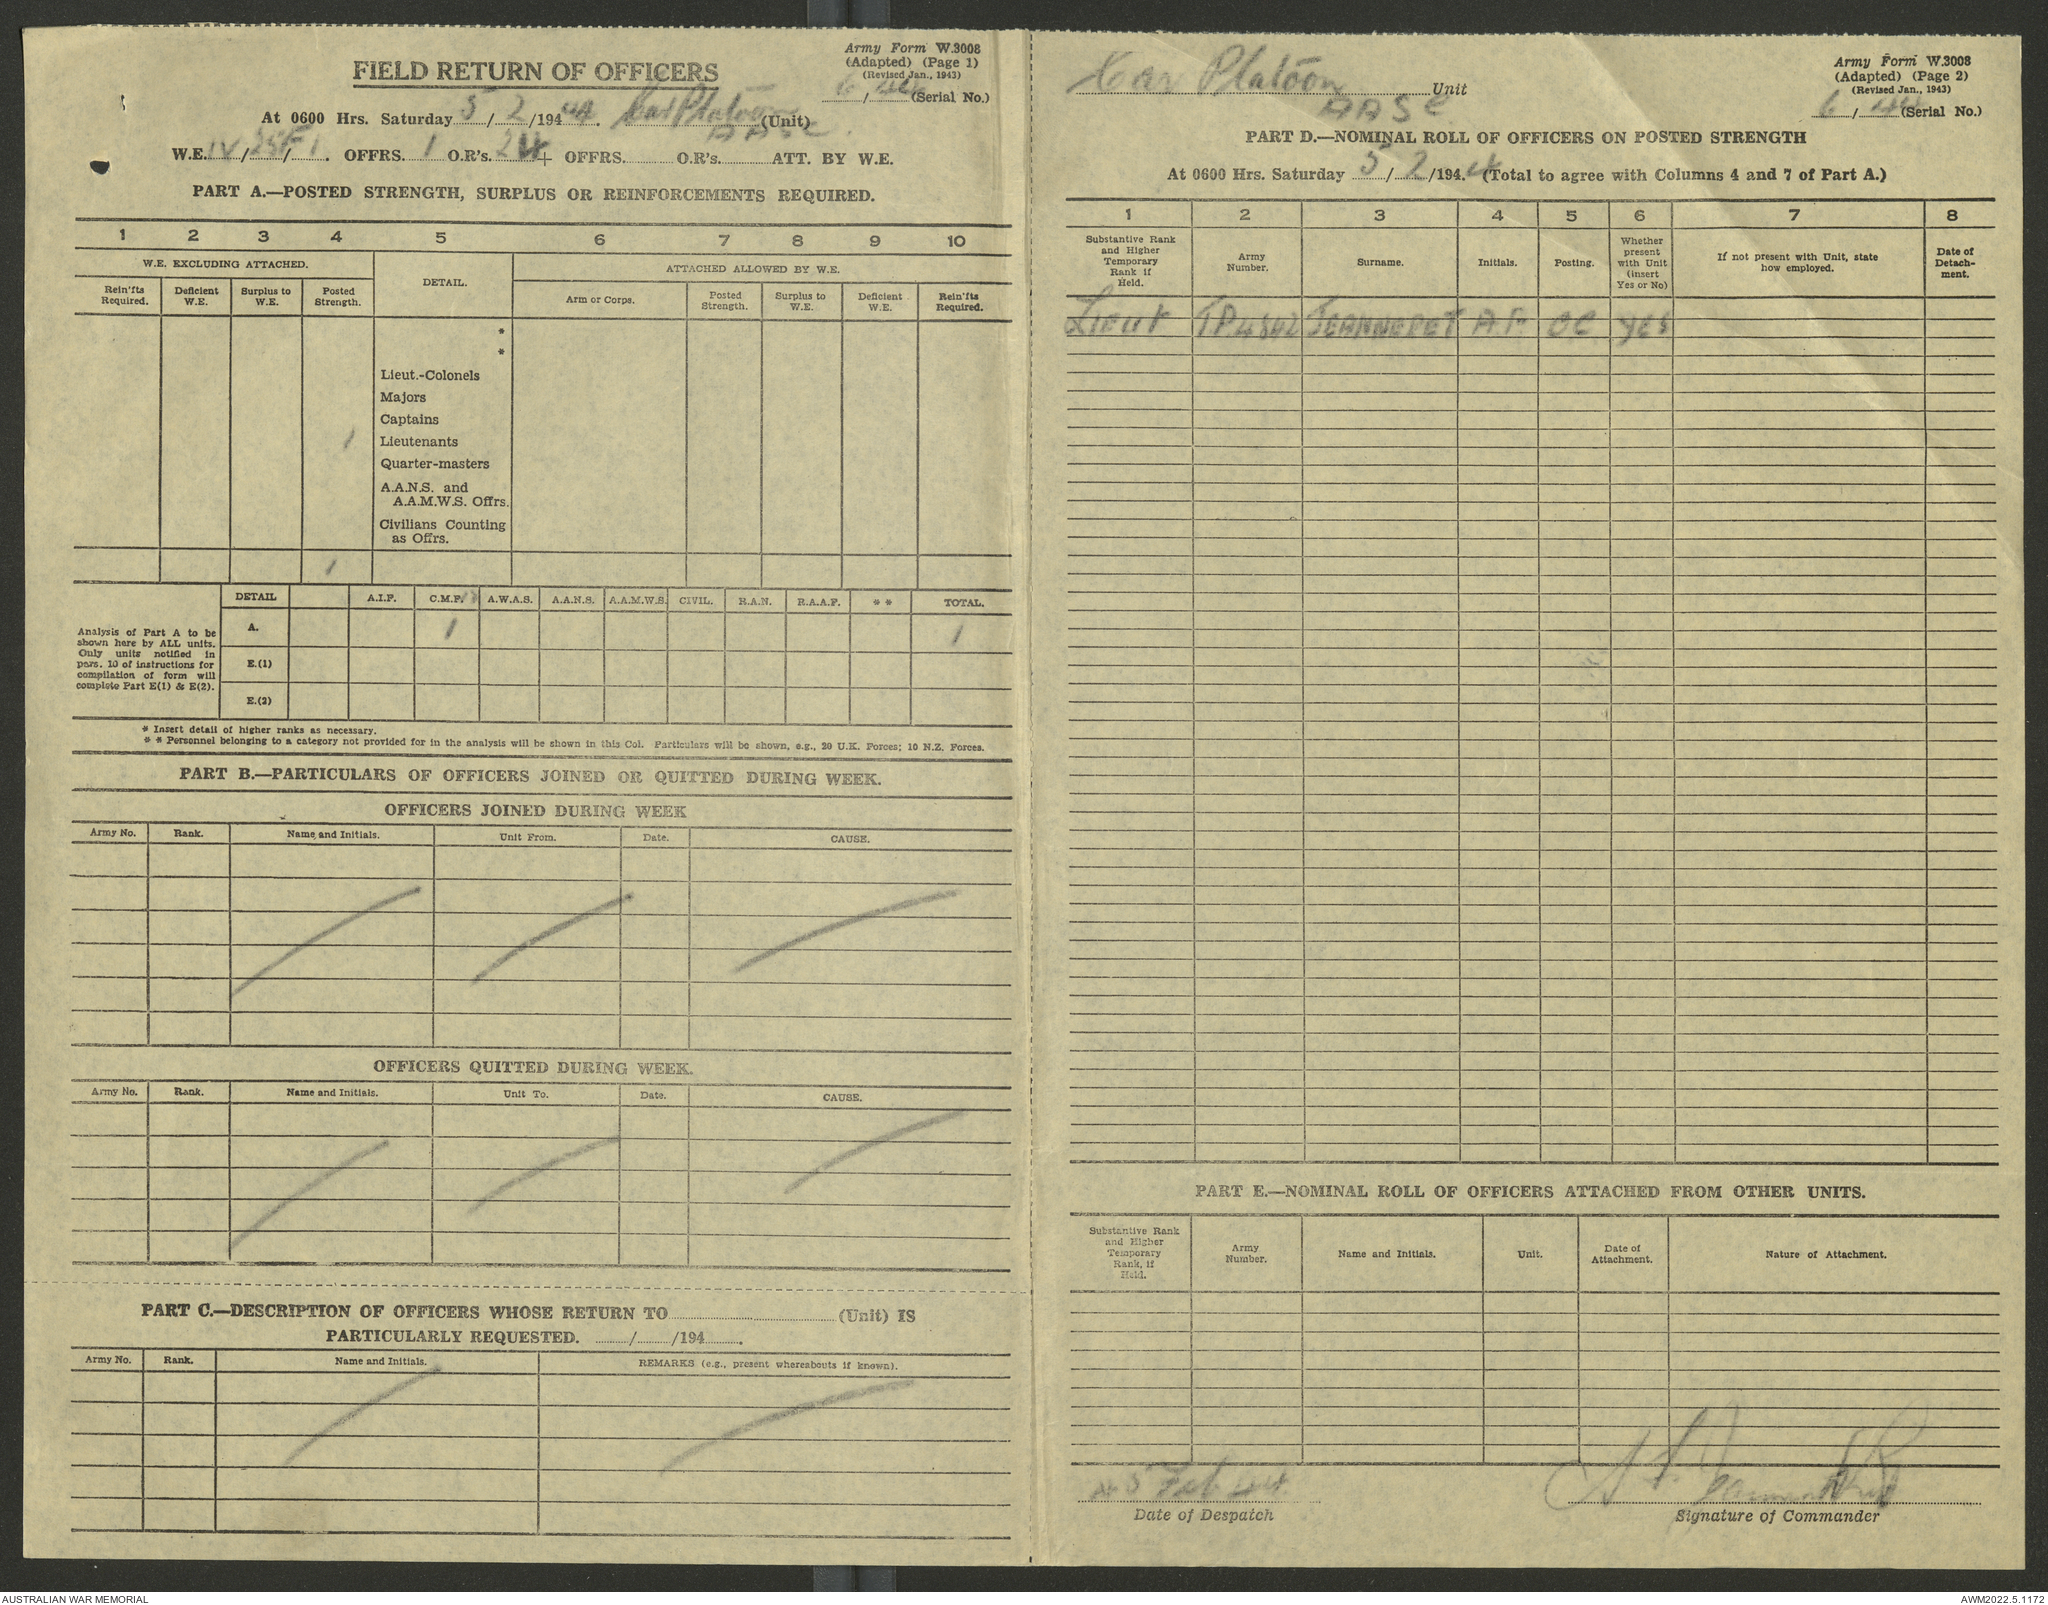 Army Form W.3008
(Adapted) (Page 1)
(Revised Jan., 1943)
6/44 (Serial No.)
FIELD RETURN OF OFFICERS
At 0600 Hrs. Saturday 5/2/1944. Car Platoon (Unit)
AASC
W.E. IV/25F/1. OFFRS. 1 O.R's. 24 + OFFRS. O.R's. ATT. BY W.E.
PART A.—POSTED STRENGTH, SURPLUS OR REINFORCEMENTS REQUIRED.
1 2 3 4 5 6 7 8 9 10
W.E. EXCLUDING ATTACHED. DETAIL. ATTACHED ALLOWED BY W.E.
Rein'fts Required. Deficient W.E. Surplus to W.E. Posted Strength. Arm or Corps. Posted Strength. Surplus to W.E. Deficient W.E. Rein'fts Required.
*
*
Lieut.-Colonels
Majors
Captains
1 Lieutenants
Quarter-masters
A.A.N.S. and
A.A.M.W.S. Offrs.
Civilians Counting
as Offrs.
1
DETAIL A.I.F. C.M.F. A.W.A.S. A.A.N.S. A.A.M.W.S. CIVIL. R.A.N. R.A.A.F. * * TOTAL.
Analysis of Part A to be
shown here by ALL units.
Only units notified in
para. 10 of instructions for
compilation of form will
complete Part E(1) & E(2).
A. 1 1
E.(1)
E.(2)
* Insert detail of higher ranks as necessary.
* * Personnel belonging to a category not provided for in the analysis will be shown in this Col. Particulars will be shown, e.g., 20 U.K. Forces; 10 N.Z. Forces.
PART B.—PARTICULARS OF OFFICERS JOINED OR QUITTED DURING WEEK.
OFFICERS JOINED DURING WEEK
Army No. Rank. Name and Initials. Unit From. Date. CAUSE.
OFFICERS QUITTED DURING WEEK.
Army No. Rank. Name and Initials. Unit To. Date. CAUSE.
PART C.—DESCRIPTION OF OFFICERS WHOSE RETURN TO (Unit) IS
PARTICULARLY REQUESTED. / /194 .
Army No. Rank. Name and Initials. REMARKS (e.g., present whereabouts if known).
Car Platoon Unit
AASC
Army Form W.3008
(Adapted) (Page 2)
(Revised Jan., 1943)
6/44 (Serial No.)
PART D.—NOMINAL ROLL OF OFFICERS ON POSTED STRENGTH
At 0600 Hrs. Saturday 5/2/1944 (Total to agree with Columns 4 and 7 of Part A.)
1 2 3 4 5 6 7 8
Substantive Rank and Higher Temporary Rank if Held. Army Number. Surname. Initials. Posting. Whether present with Unit (insert Yes or No) If not present with Unit, state how employed. Date of Detach-ment.
Lieut TP4842 JEANNERET A.F. OC YES
PART E.—NOMINAL ROLL OF OFFICERS ATTACHED FROM OTHER UNITS.
Substantive Rank and Higher Temporary Rank, if Held. Army Number. Name and Initials. Unit. Date of Attachment. Nature of Attachment.
5 Feb 44
Date of Despatch
Signature of Commander
AUSTRALIAN WAR MEMORIAL
AWM2022.5.1172